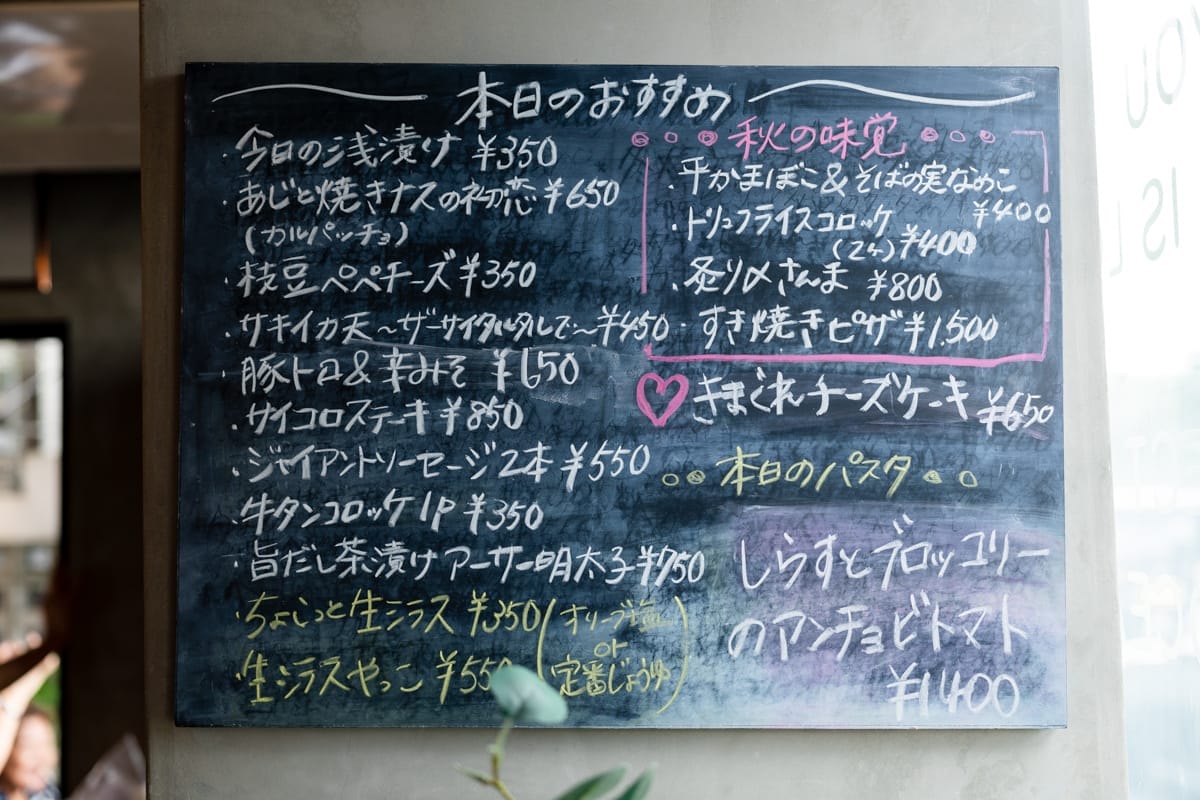 本日のおすすめ
・今日の浅漬け ¥350
・あじと焼きナスの初恋 ¥650
(カルパッチョ)
・枝豆ペペチーズ ¥350
・サキイカ天〜ザーサイタルタルで〜¥450
・豚トロ&辛みそ ¥650
・サイコロステーキ ¥850
・ジャイアントソーセージ2本 ¥550
・牛タンコロッケ1P ¥350
・旨だし茶漬け アーサー明太子 ¥750
・ちょこっと生シラス ¥350
・生シラスやっこ ¥550
(オリーブ塩
or
定番じょうゆ)
秋の味覚
・平かまぼこ&そばの実なめこ
¥400
・トリュフライスコロッケ
(2ケ) ¥400
・炙り〆さんま ¥800
・すき焼きピザ ¥1,500
♡きまぐれチーズケーキ
¥650
本日のパスタ
しらすとブロッコリー
のアンチョビトマト
¥1400
YOU
IS L